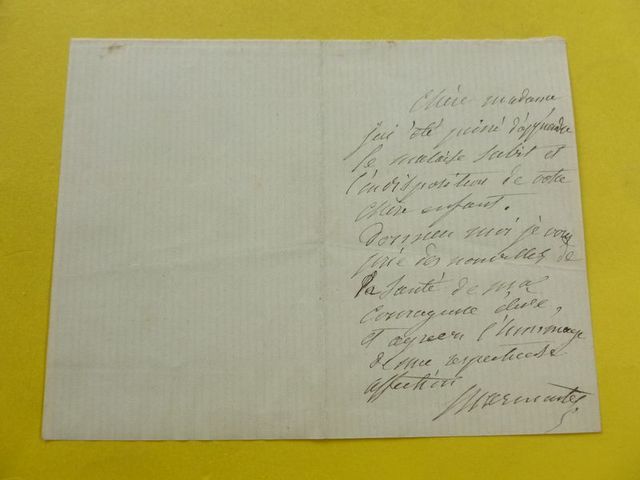 Chère madame
j'ai été peiné d'apprendre
le malaise subit et
l'indisposition de votre
chère enfant.
Donnez moi je vous
prie des nouvelles de
la santé de ma
courageuse élève,
et agréez l'hommage
de ma respectueuse
affection
Marmontel